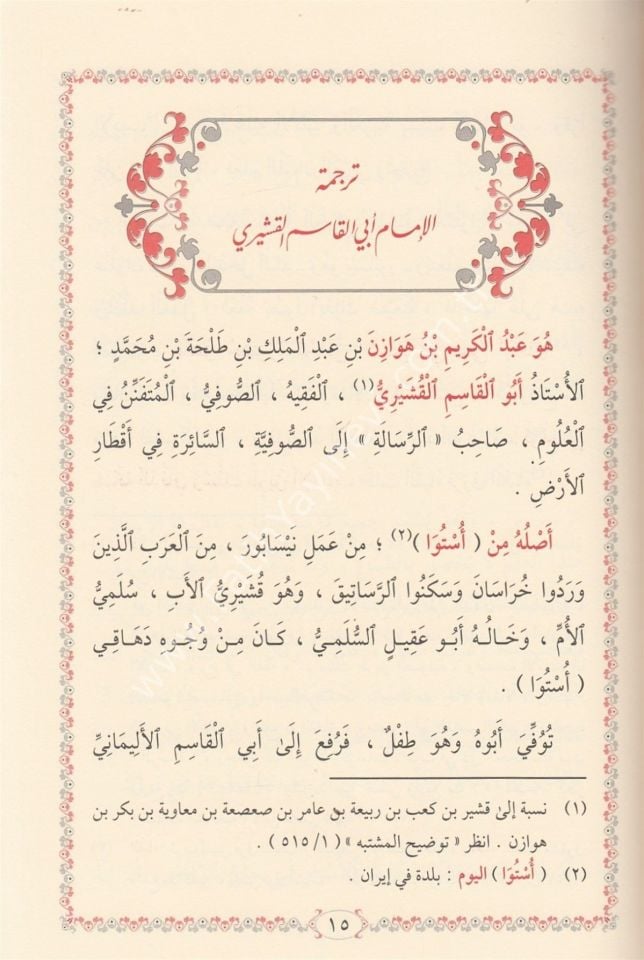 ترجمة
الإمام أبي القاسم القشيري
هُوَ عَبْدُ ٱلْكَرِيمِ بْنُ هَوَازِنَ بْنِ عَبْدِ ٱلْمَلِكِ بْنِ طَلْحَةَ بْنِ مُحَمَّدٍ ؛
ٱلأُسْتَاذُ أَبُو ٱلْقَاسِمِ ٱلْقُشَيْرِيُّ (١) ، ٱلْفَقِيهُ ، ٱلصُّوفِيُّ ، ٱلْمُتَفَنِّنُ فِي
ٱلْعُلُومِ ، صَاحِبُ « ٱلرِّسَالَةِ » إِلَى ٱلصُّوفِيَّةِ ، ٱلسَّائِرَةِ فِي أَقْطَارِ
ٱلأَرْضِ .
أَصْلُهُ مِنْ ( أُسْتُوَا ) (٢) ؛ مِنْ عَمَلِ نَيْسَابُورَ ، مِنَ ٱلْعَرَبِ ٱلَّذِينَ
وَرَدُوا خُرَاسَانَ وَسَكَنُوا ٱلرَّسَاتِيقَ ، وَهُوَ قُشَيْرِيُّ ٱلأَبِ ، سُلَمِيُّ
ٱلأُمِّ ، وَخَالُهُ أَبُو عَقِيلٍ ٱلسُّلَمِيُّ ، كَانَ مِنْ وُجُوهِ دَهَاقِي
( أُسْتُوَا ) .
تُوُفِّيَ أَبُوهُ وَهُوَ طِفْلٌ ، فَرُفِعَ إِلَىٰ أَبِي ٱلْقَاسِمِ ٱلأَلِيمَانِيِّ
(١) نسبة إلىٰ قشير بن كعب بن ربيعة بن عامر بن صعصعة بن معاوية بن بكر بن
هوازن . انظر « توضيح المشتبه » ( ١/ ٥١٥ ) .
(٢) ( أُسْتُوَا ) اليوم : بلدة في إيران .
١٥